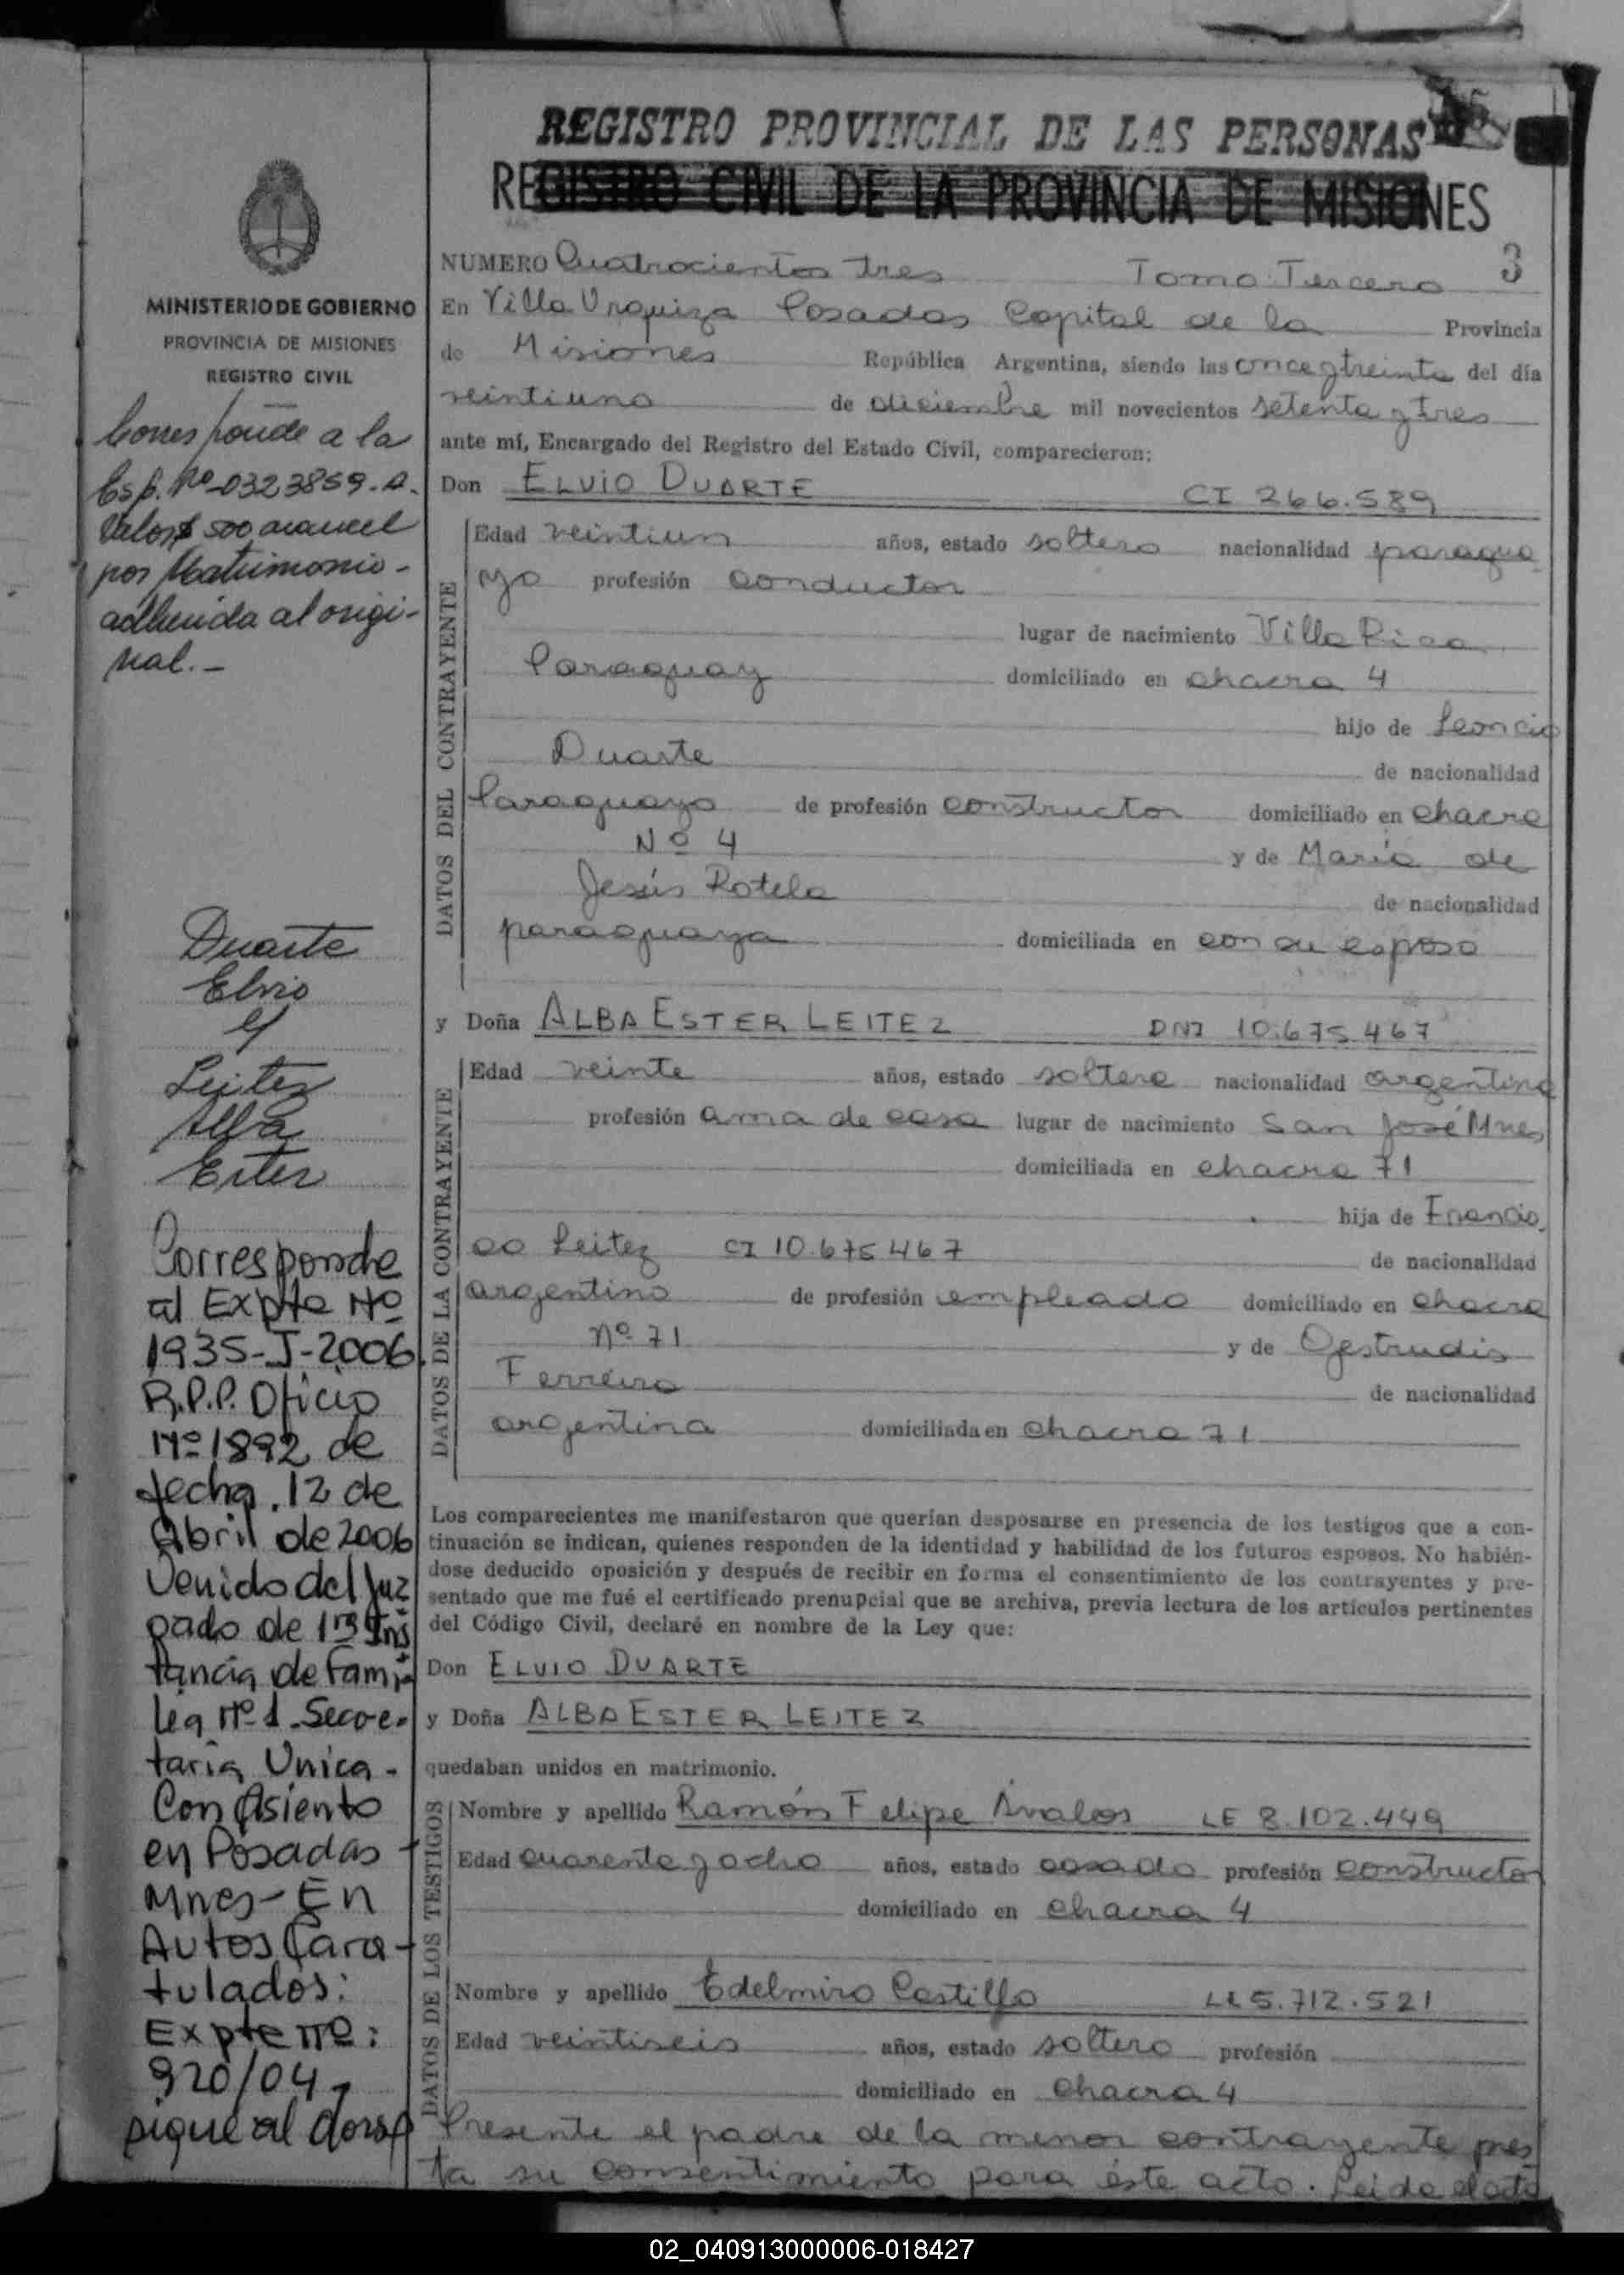 REGISTRO PROVINCIAL DE LAS PERSONAS
REGISTRO CIVIL DE LA PROVINCIA DE MISIONES
3
NUMERO Cuatrocientos tres Tomo: Tercero
En Villa Urquiza Posadas Capital de la Provincia
de Misiones República Argentina, siendo las once y treinta del día
veintiuno de diciembre mil novecientos setenta y tres
ante mí, Encargado del Registro del Estado Civil, comparecieron:
Don ELVIO DUARTE CI 266.589
DATOS DEL CONTRAYENTE
Edad veintiun años, estado soltero nacionalidad paragua
yo profesión conductor
lugar de nacimiento Villa Rica
Paraguay domiciliado en chacra 4
hijo de Leoncio
Duarte de nacionalidad
Paraguayo de profesión constructor domiciliado en chacra
Nº 4 y de María de
Jesús Rotela de nacionalidad
paraguaya domiciliada en con su esposo
y Doña ALBA ESTER LEITEZ DNI 10.675.467
DATOS DE LA CONTRAYENTE
Edad veinte años, estado soltera nacionalidad argentina
profesión ama de casa lugar de nacimiento San José Mnes
domiciliada en chacra 71
hija de Francis
co Leitez CI 10.675.467 de nacionalidad
argentino de profesión empleado domiciliado en chacra
nº 71 y de Gestrudis
Ferreira de nacionalidad
argentina domiciliada en chacra 71
Los comparecientes me manifestaron que querían desposarse en presencia de los testigos que a con-
tinuación se indican, quienes responden de la identidad y habilidad de los futuros esposos. No habién-
dose deducido oposición y después de recibir en forma el consentimiento de los contrayentes y pre-
sentado que me fué el certificado prenupcial que se archiva, previa lectura de los artículos pertinentes
del Código Civil, declaré en nombre de la Ley que:
Don ELVIO DUARTE
y Doña ALBA ESTER LEITEZ
quedaban unidos en matrimonio.
DATOS DE LOS TESTIGOS
Nombre y apellido Ramón Felipe Avalos LE 8.102.449
Edad cuarenta y ocho años, estado casado profesión constructor
domiciliado en chacra 4
Nombre y apellido Edelmiro Castillo LE 5.712.521
Edad veintiseis años, estado soltero profesión
domiciliado en chacra 4
Presente el padre de la menor contrayente pres
ta su consentimiento para éste acto. Leida el acta
MINISTERIO DE GOBIERNO
PROVINCIA DE MISIONES
REGISTRO CIVIL
Corresponde a la
Esp. Nº 0323859.A.
Valor $ 500 arancel
por Matrimonio-
adherida al origi-
nal.-
Duarte
Elvio
y
Leitez
Alba
Ester
Corresponde
al Expte Nº
1935-J-2006.
R.P.P. Oficio
Nº 1892 de
fecha 12 de
Abril de 2006
Venido del Juz
gado de 1ra Ins
tancia de Fami
lia Nº 1 - Secre-
taria Unica-
Con Asiento
en Posadas-
Mnes- En
Autos Cara-
tulados:
Expte Nº:
920/04,
sigue al dorso
02_040913000006-018427